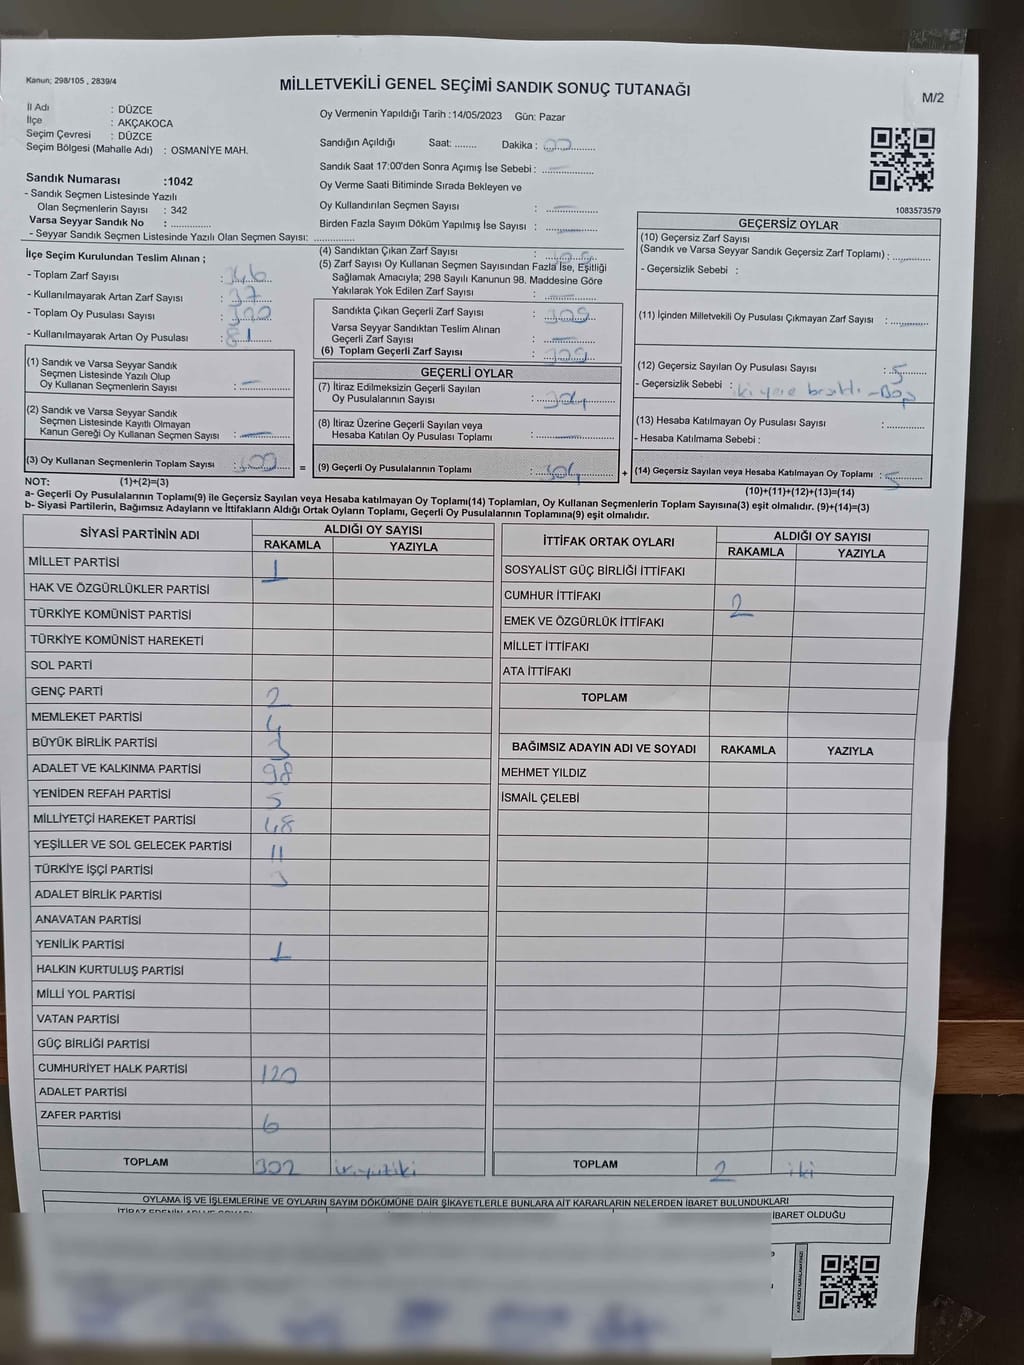 Kanun; 298/105 , 2839/4
MİLLETVEKİLİ GENEL SEÇİMİ SANDIK SONUÇ TUTANAĞI
M/2
İl Adı : DÜZCE
İlçe : AKÇAKOCA
Seçim Çevresi : DÜZCE
Seçim Bölgesi (Mahalle Adı) : OSMANİYE MAH.
Oy Vermenin Yapıldığı Tarih :14/05/2023 Gün: Pazar
Sandığın Açıldığı Saat: ........ Dakika :
Sandık Saat 17:00'den Sonra Açımış İse Sebebi :
Oy Verme Saati Bitiminde Sırada Bekleyen ve
Oy Kullandırılan Seçmen Sayısı :
Birden Fazla Sayım Döküm Yapılmış İse Sayısı :
Sandık Numarası :1042
- Sandık Seçmen Listesinde Yazılı
Olan Seçmenlerin Sayısı : 342
Varsa Seyyar Sandık No :
- Seyyar Sandık Seçmen Listesinde Yazılı Olan Seçmen Sayısı:
1083573579
İlçe Seçim Kurulundan Teslim Alınan ;
- Toplam Zarf Sayısı : 346
- Kullanılmayarak Artan Zarf Sayısı : 37
- Toplam Oy Pusulası Sayısı : 390
- Kullanılmayarak Artan Oy Pusulası : 81
(1) Sandık ve Varsa Seyyar Sandık
Seçmen Listesinde Yazılı Olup
Oy Kullanan Seçmenlerin Sayısı : —
(2) Sandık ve Varsa Seyyar Sandık
Seçmen Listesinde Kayıtlı Olmayan
Kanun Gereği Oy Kullanan Seçmen Sayısı : —
(3) Oy Kullanan Seçmenlerin Toplam Sayısı :
(4) Sandıktan Çıkan Zarf Sayısı : 309
(5) Zarf Sayısı Oy Kullanan Seçmen Sayısından Fazla İse, Eşitliği
Sağlamak Amacıyla; 298 Sayılı Kanunun 98. Maddesine Göre
Yakılarak Yok Edilen Zarf Sayısı : —
Sandıkta Çıkan Geçerli Zarf Sayısı : 309
Varsa Seyyar Sandıktan Teslim Alınan
Geçerli Zarf Sayısı : —
(6) Toplam Geçerli Zarf Sayısı : 309
GEÇERLİ OYLAR
(7) İtiraz Edilmeksizin Geçerli Sayılan
Oy Pusulalarının Sayısı : 304
(8) İtiraz Üzerine Geçerli Sayılan veya
Hesaba Katılan Oy Pusulası Toplamı : —
= (9) Geçerli Oy Pusulalarının Toplamı : 304 +
GEÇERSİZ OYLAR
(10) Geçersiz Zarf Sayısı
(Sandık ve Varsa Seyyar Sandık Geçersiz Zarf Toplamı) :
- Geçersizlik Sebebi :
(11) İçinden Milletvekili Oy Pusulası Çıkmayan Zarf Sayısı :
(12) Geçersiz Sayılan Oy Pusulası Sayısı : 5
- Geçersizlik Sebebi : iki yere
(13) Hesaba Katılmayan Oy Pusulası Sayısı :
- Hesaba Katılmama Sebebi :
(14) Geçersiz Sayılan veya Hesaba Katılmayan Oy Toplamı : 5
NOT: (1)+(2)=(3)
(10)+(11)+(12)+(13)=(14)
a- Geçerli Oy Pusulalarının Toplamı(9) ile Geçersiz Sayılan veya Hesaba katılmayan Oy Toplamı(14) Toplamları, Oy Kullanan Seçmenlerin Toplam Sayısına(3) eşit olmalıdır. (9)+(14)=(3)
b- Siyasi Partilerin, Bağımsız Adayların ve İttifakların Aldığı Ortak Oyların Toplamı, Geçerli Oy Pusulalarının Toplamına(9) eşit olmalıdır.
SİYASİ PARTİNİN ADI ALDIĞI OY SAYISI
RAKAMLA YAZIYLA
MİLLET PARTİSİ 1
HAK VE ÖZGÜRLÜKLER PARTİSİ
TÜRKİYE KOMÜNİST PARTİSİ
TÜRKİYE KOMÜNİST HAREKETİ
SOL PARTİ
GENÇ PARTİ 2
MEMLEKET PARTİSİ 4
BÜYÜK BİRLİK PARTİSİ 3
ADALET VE KALKINMA PARTİSİ 98
YENİDEN REFAH PARTİSİ 5
MİLLİYETÇİ HAREKET PARTİSİ 48
YEŞİLLER VE SOL GELECEK PARTİSİ 11
TÜRKİYE İŞÇİ PARTİSİ 3
ADALET BİRLİK PARTİSİ
ANAVATAN PARTİSİ
YENİLİK PARTİSİ 1
HALKIN KURTULUŞ PARTİSİ
MİLLİ YOL PARTİSİ
VATAN PARTİSİ
GÜÇ BİRLİĞİ PARTİSİ
CUMHURİYET HALK PARTİSİ 120
ADALET PARTİSİ
ZAFER PARTİSİ 6
TOPLAM 302
İTTİFAK ORTAK OYLARI ALDIĞI OY SAYISI
RAKAMLA YAZIYLA
SOSYALİST GÜÇ BİRLİĞİ İTTİFAKI
CUMHUR İTTİFAKI 2
EMEK VE ÖZGÜRLÜK İTTİFAKI
MİLLET İTTİFAKI
ATA İTTİFAKI
TOPLAM
BAĞIMSIZ ADAYIN ADI VE SOYADI RAKAMLA YAZIYLA
MEHMET YILDIZ
İSMAİL ÇELEBİ
TOPLAM 2 iki
OYLAMA İŞ VE İŞLEMLERİNE VE OYLARIN SAYIM DÖKÜMÜNE DAİR ŞİKAYETLERLE BUNLARA AİT KARARLARIN NELERDEN İBARET BULUNDUKLARI
İBARET OLDUĞU